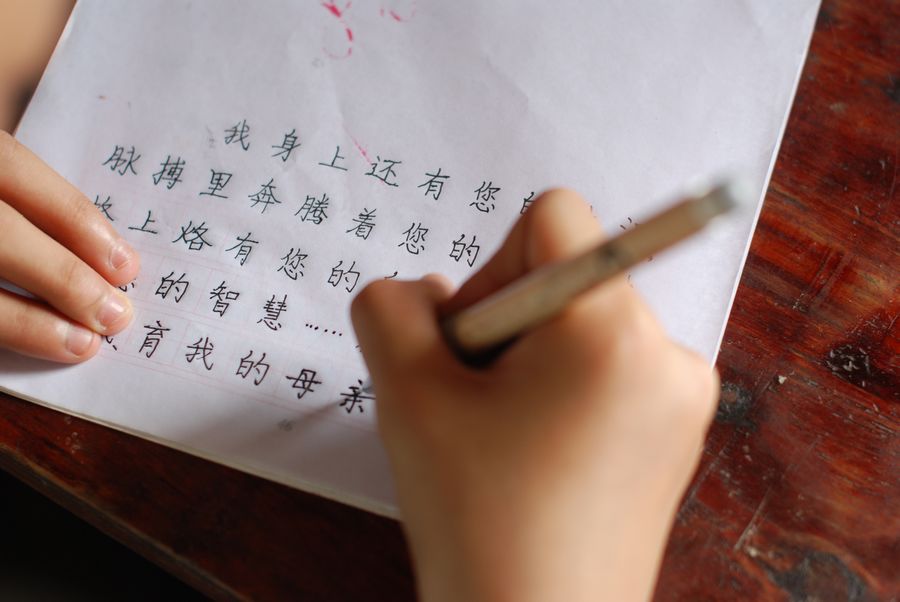 我身上还有您的
脉搏里奔腾着您的
上烙有您的
的智慧……
育我的母亲